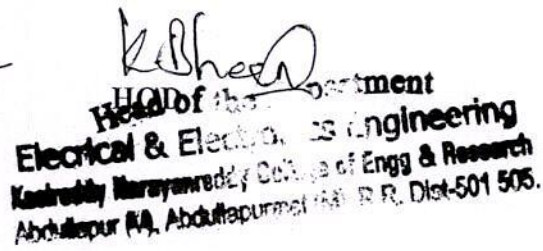 K Bhee
HOD
Head of the Department
Elecrical & Electronics Engineering
Kasireddy Narayanreddy College of Engg & Research
Abdullapur (V), Abdullapurmet (M) R.R. Dist-501 505.